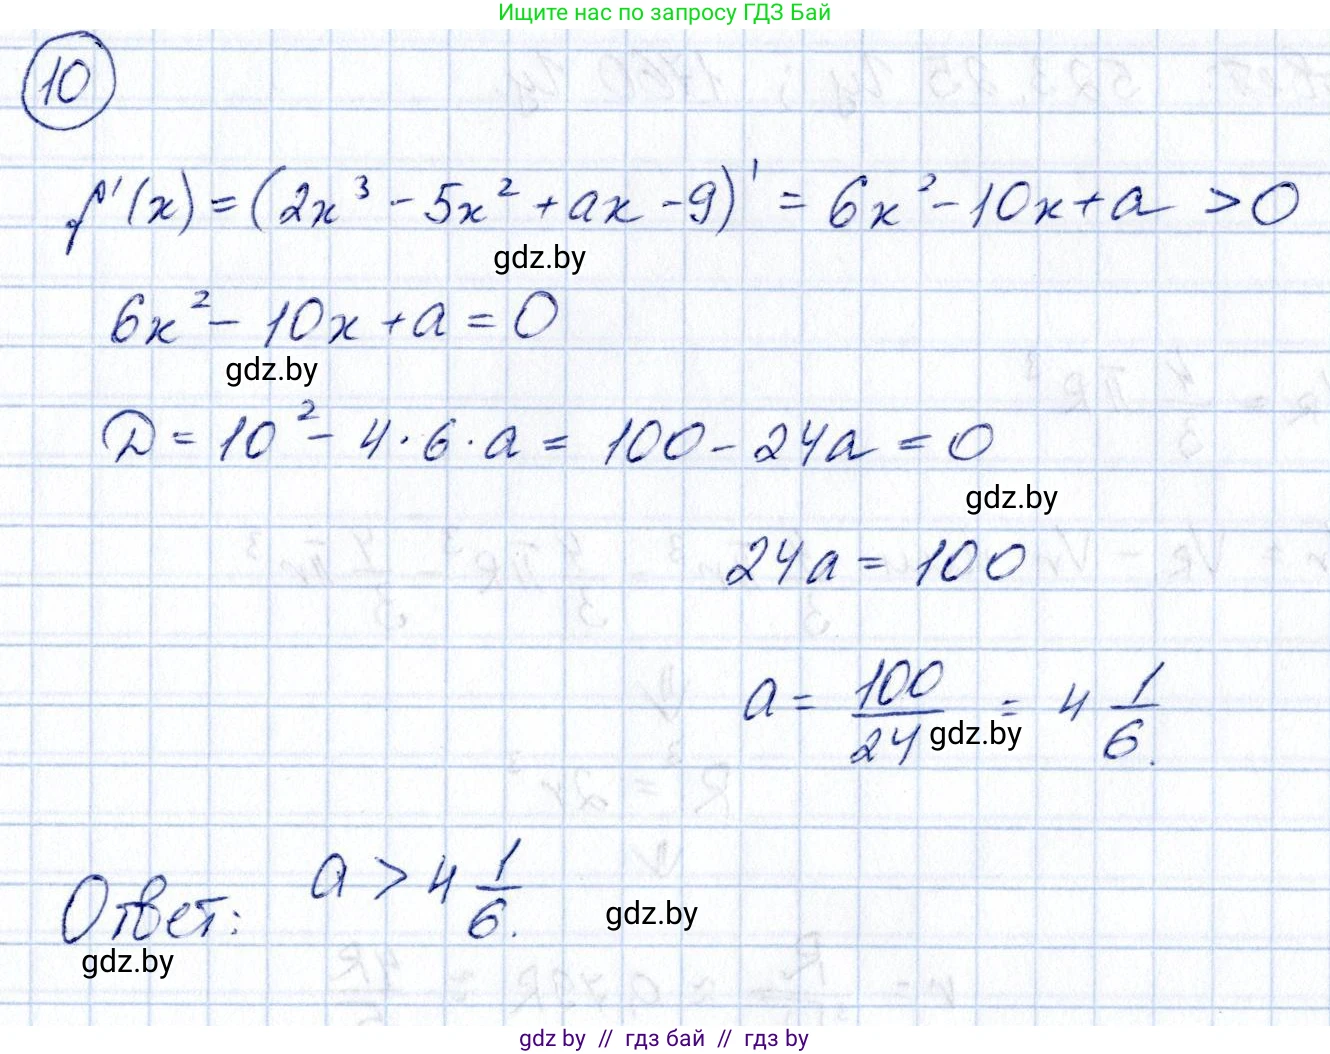 Ищите нас по запросу ГДЗ Бай
10
f'(x) = (2x³ - 5x² + ax - 9)' = 6x² - 10x + a > 0
gdz.by
6x² - 10x + a = 0
gdz.by
D = 10² - 4 · 6 · a = 100 - 24a = 0
gdz.by
24a = 100
a = 100/24 = 4 1/6.
gdz.by
Ответ: a > 4 1/6.
gdz.by
gdz.by
gdz by // гдз бай // гдз by